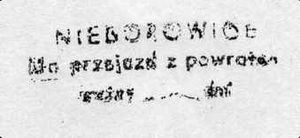 NIEBOROWICE
Na przejazd z powrotem
ważny ...... dni